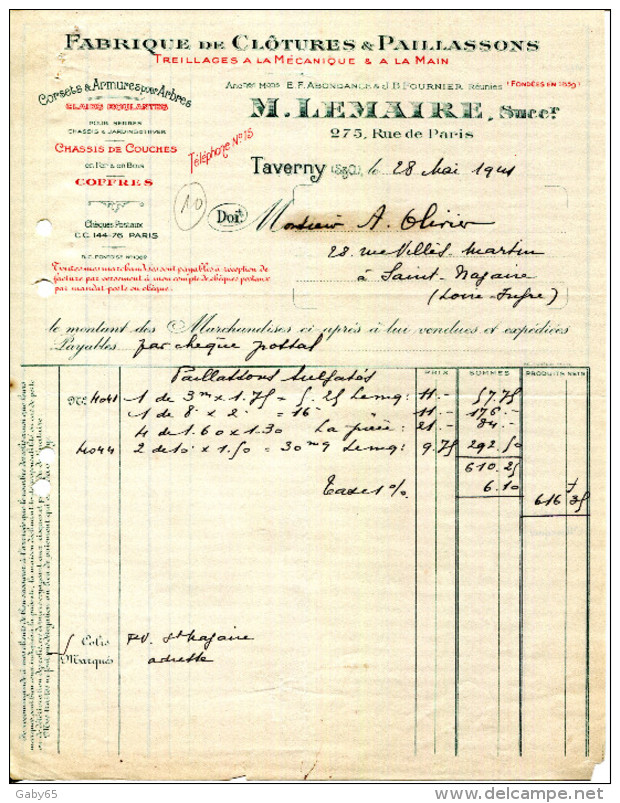 FABRIQUE DE CLÔTURES & PAILLASSONS
TREILLAGES A LA MÉCANIQUE & A LA MAIN
Corsets & Armures pour Arbres
CLAIES ROULANTES
POUR SERRES
CHASSIS & JARDINS D'HIVER
CHASSIS DE COUCHES
en Fer & en Bois
COFFRES
Chèques Postaux
C.C. 144-76 PARIS
Toutes mes marchandises sont payables à réception de
facture par versement à mon compte de chèques postaux
par mandat-poste ou chèque.
Téléphone N° 15
Anc.nes Mons E. F. ABONDANCE & J. B. FOURNIER Réunies (FONDÉES EN 1859)
M. LEMAIRE, Succr
275, Rue de Paris
Taverny (S&O), le 28 Mai 1941
10
Doit Monsieur A. Olivier
28 rue Villès Martin
à Saint-Nazaire
(Loire-Infre)
le montant des Marchandises ci après à lui vendues et expédiées
Payables par chèque postal
PRIX SOMMES PRODUITS NETS
Paillassons sulfatés
No 4041 1 de 3m x 1.75 = 5.25 Le mq: 11.- 57.75
1 de 8 x 2 = 16 11.- 176.-
4 de 1.60 x 1.30 La pièce: 21.- 84.-
4044 2 de 10 x 1.50 = 30mq Le mq: 9.75 292.50
610.25
Taxe 1% 6.10
616 35
5 Colis P.V. St Nazaire
Marqués adresse
Gaby65
www.delcampe.net